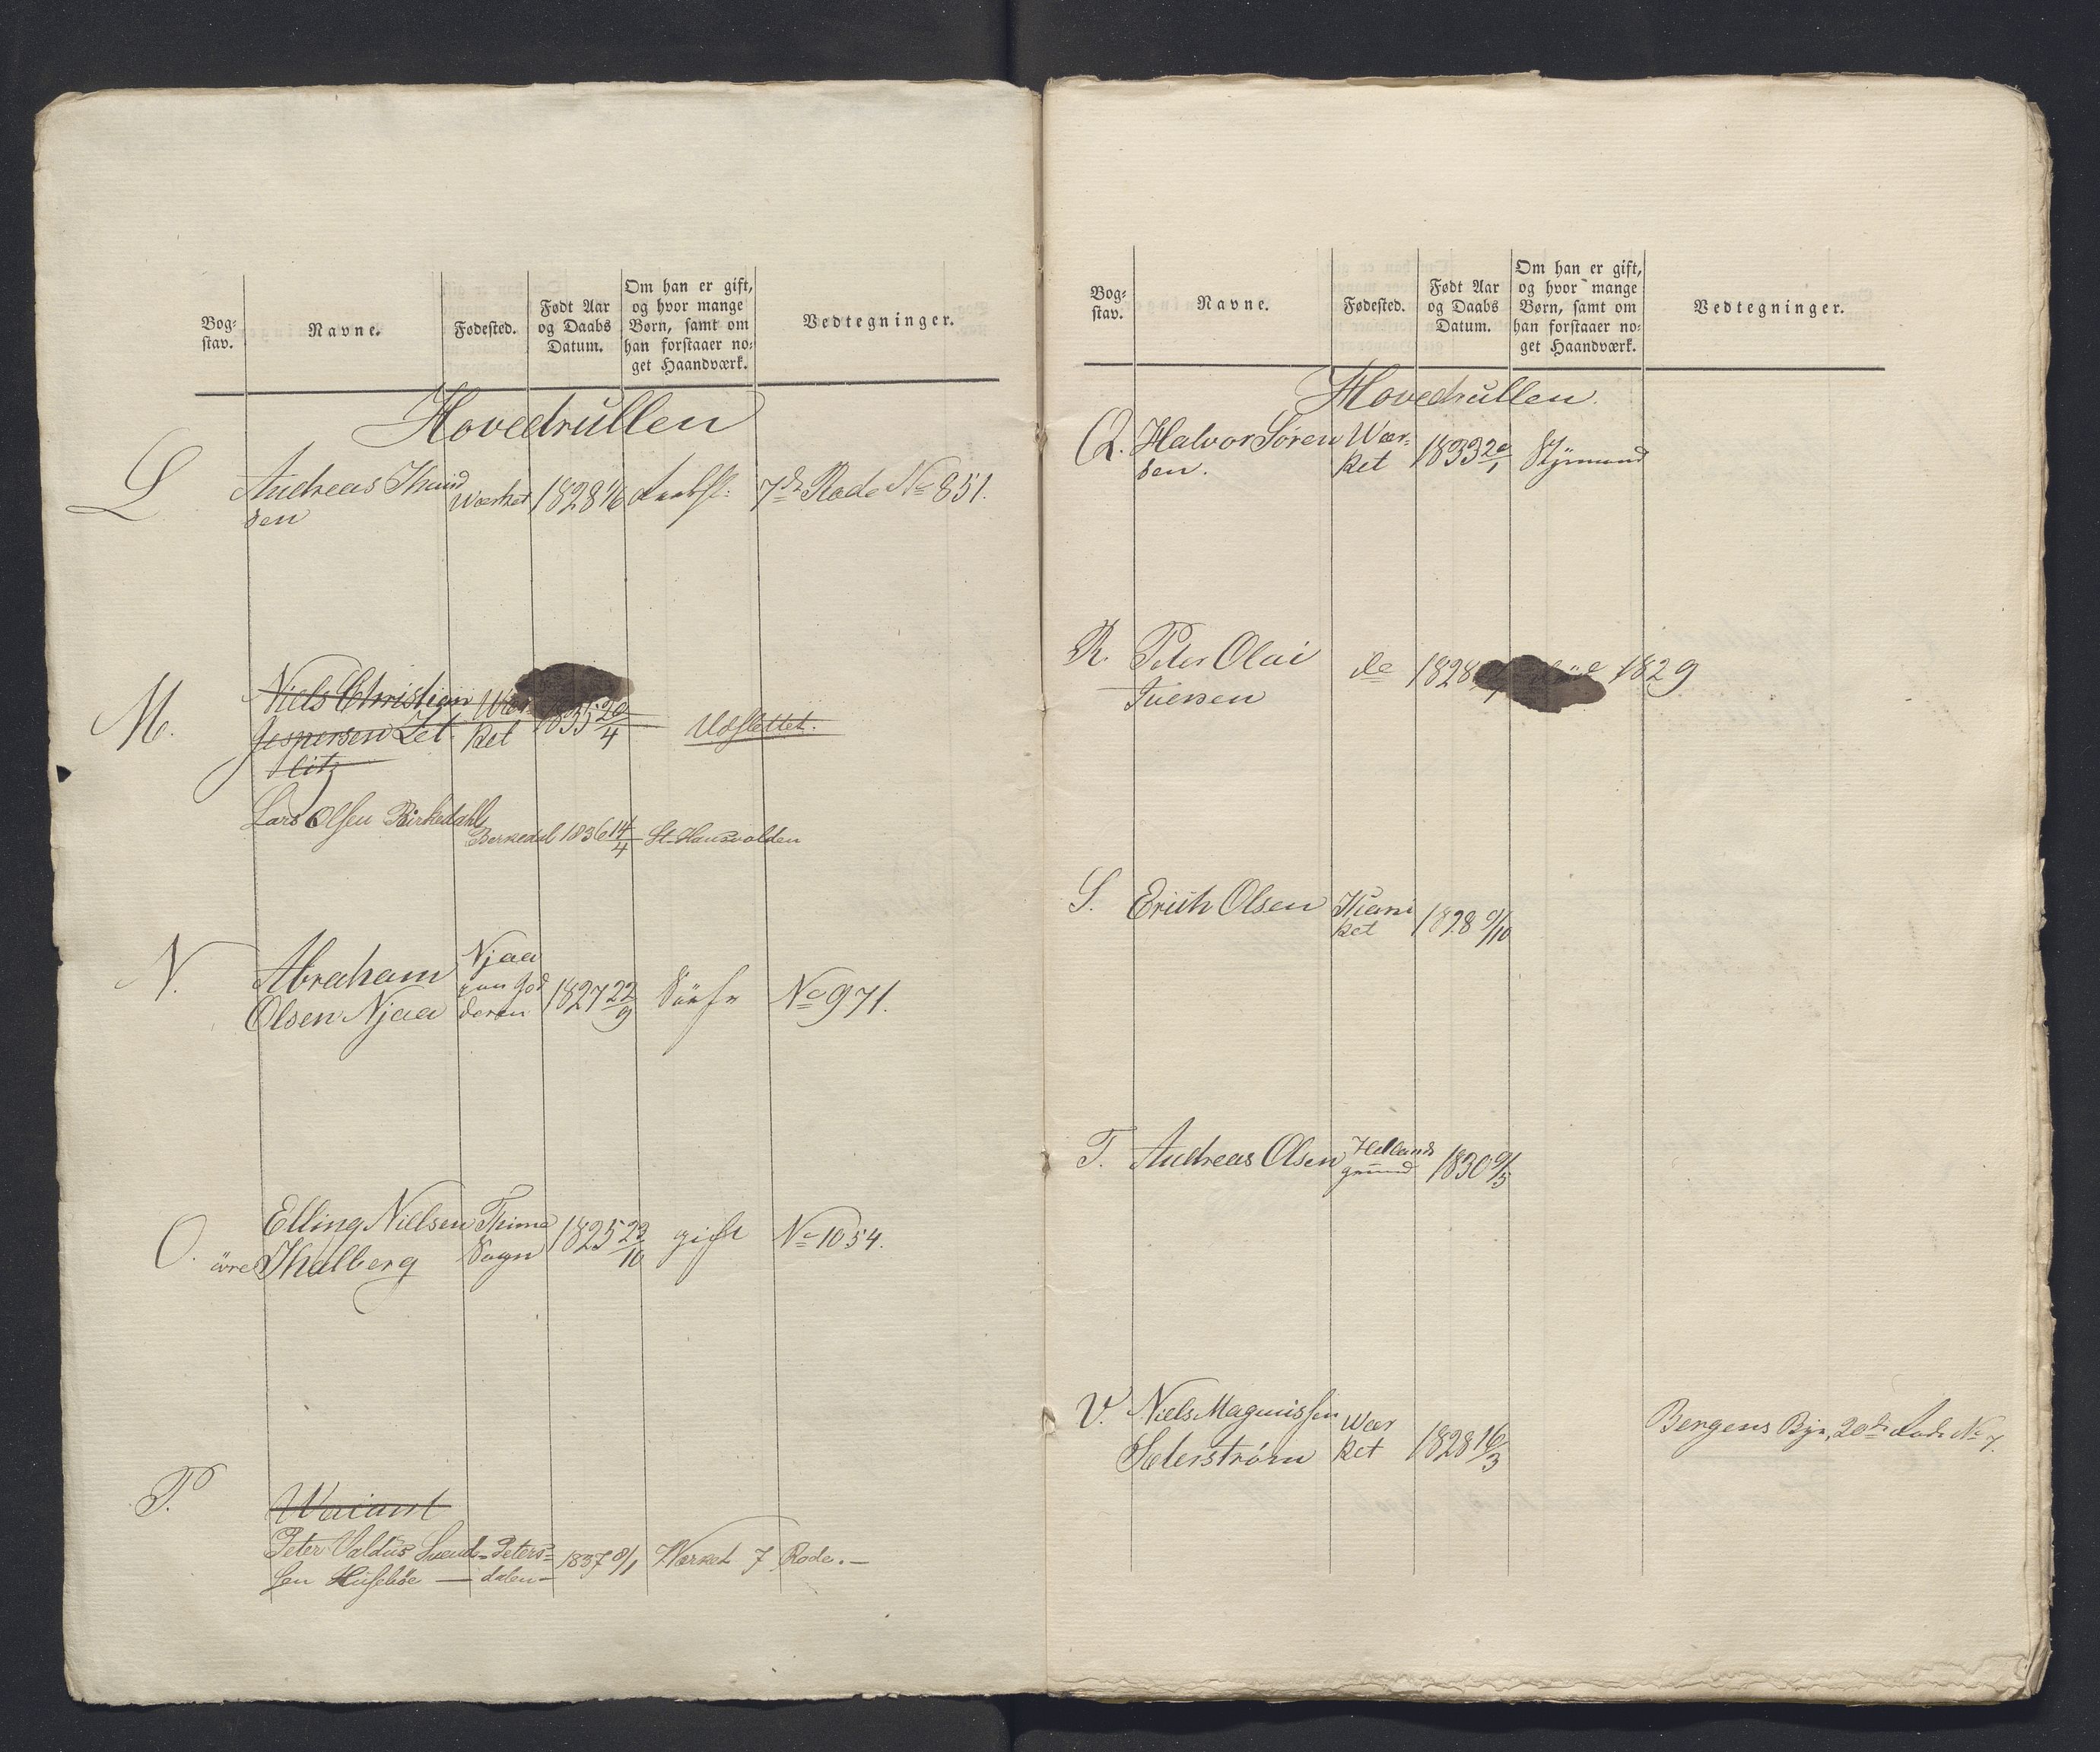 Bog-
stav.
Navne.
Fødested.
Født Aar
og Daabs
Datum.
Om han er gift,
og hvor mange
Børn, samt om
han forstaaer no-
get Haandværk.
Vedtegninger.
Hovedrullen
L Andreas Thuid
sen
Wærket 1828 7de Rode No 851.
M. Niels Christian Wær
Jespersen Zet
litz
ket 1835 20/4 Udslettet.
Lars Olsen Birkedahl
Berkedal 1836 14/4 St. Hansvolden
N. Abraham
Olsen Njaa
Njaa
paa Jæd
deren
1827 22/9 No 971.
O. Elling Nielsen
øvre Thalberg
Thime
Sogn
1825 23/10 gift No 1054.
P. Wacant
Peter Valdus Svend-
sen Husebøe
Peters-
dalen
1837 8/1 Værket 7 Rode.
Bog-
stav.
Navne.
Fødested.
Født Aar
og Daabs
Datum.
Om han er gift,
og hvor mange
Børn, samt om
han forstaaer no-
get Haandværk.
Vedtegninger.
Hovedrullen.
Q. Halvor Søren
sen.
Wær-
ket
1833 20/1 Styrmand
R. Peter Olai
Iversen
do 1828 1829
S. Erich Olsen
ket
1828 9/10
T. Andreas Olsen
Hetlands
grund
1830 9/5
V. Niels Magnissen
Sclerstrøm
Wær
ket
1828 16/3 Bergens Bye, 20de Rode No 7.